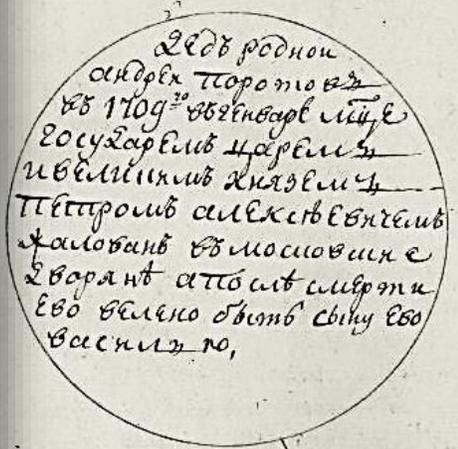 Дедъ роднои
андреи Поротовъ
въ 1709го въ генваре мце
государемъ царемъ
и великимъ княземъ
Петромъ алексѣевичемъ
жалованъ въ московские
дворянѣ а послѣ смерти
ево велено быть сыну ево
василью,